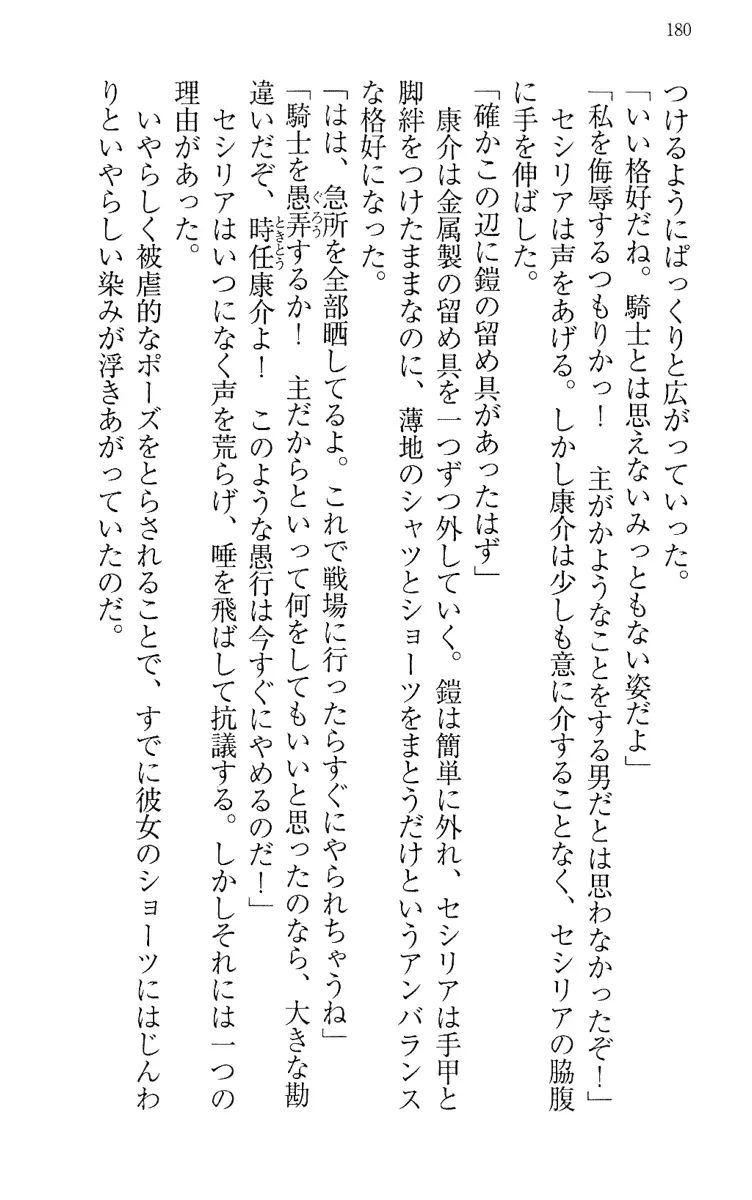 180
つけるようにぱっくりと広がっていった。
「いい格好だね。騎士とは思えないみっともない姿だよ」
「私を侮辱するつもりかっ！　主がかようなことをする男だとは思わなかったぞ！」
　セシリアは声をあげる。しかし康介は少しも意に介することなく、セシリアの脇腹
に手を伸ばした。
「確かこの辺に鎧の留め具があったはず」
　康介は金属製の留め具を一つずつ外していく。鎧は簡単に外れ、セシリアは手甲と
脚絆をつけたままなのに、薄地のシャツとショーツをまとうだけというアンバランス
な格好になった。
「はは、急所を全部晒してるよ。これで戦場に行ったらすぐにやられちゃうね」
「騎士を愚弄するか！　主だからといって何をしてもいいと思ったのなら、大きな勘
ぐろう
違いだぞ、時任康介よ！　このような愚行は今すぐにやめるのだ！」
ときとう
　セシリアはいつになく声を荒らげ、唾を飛ばして抗議する。しかしそれには一つの
理由があった。
　いやらしく被虐的なポーズをとらされることで、すでに彼女のショーツにはじんわ
りといやらしい染みが浮きあがっていたのだ。